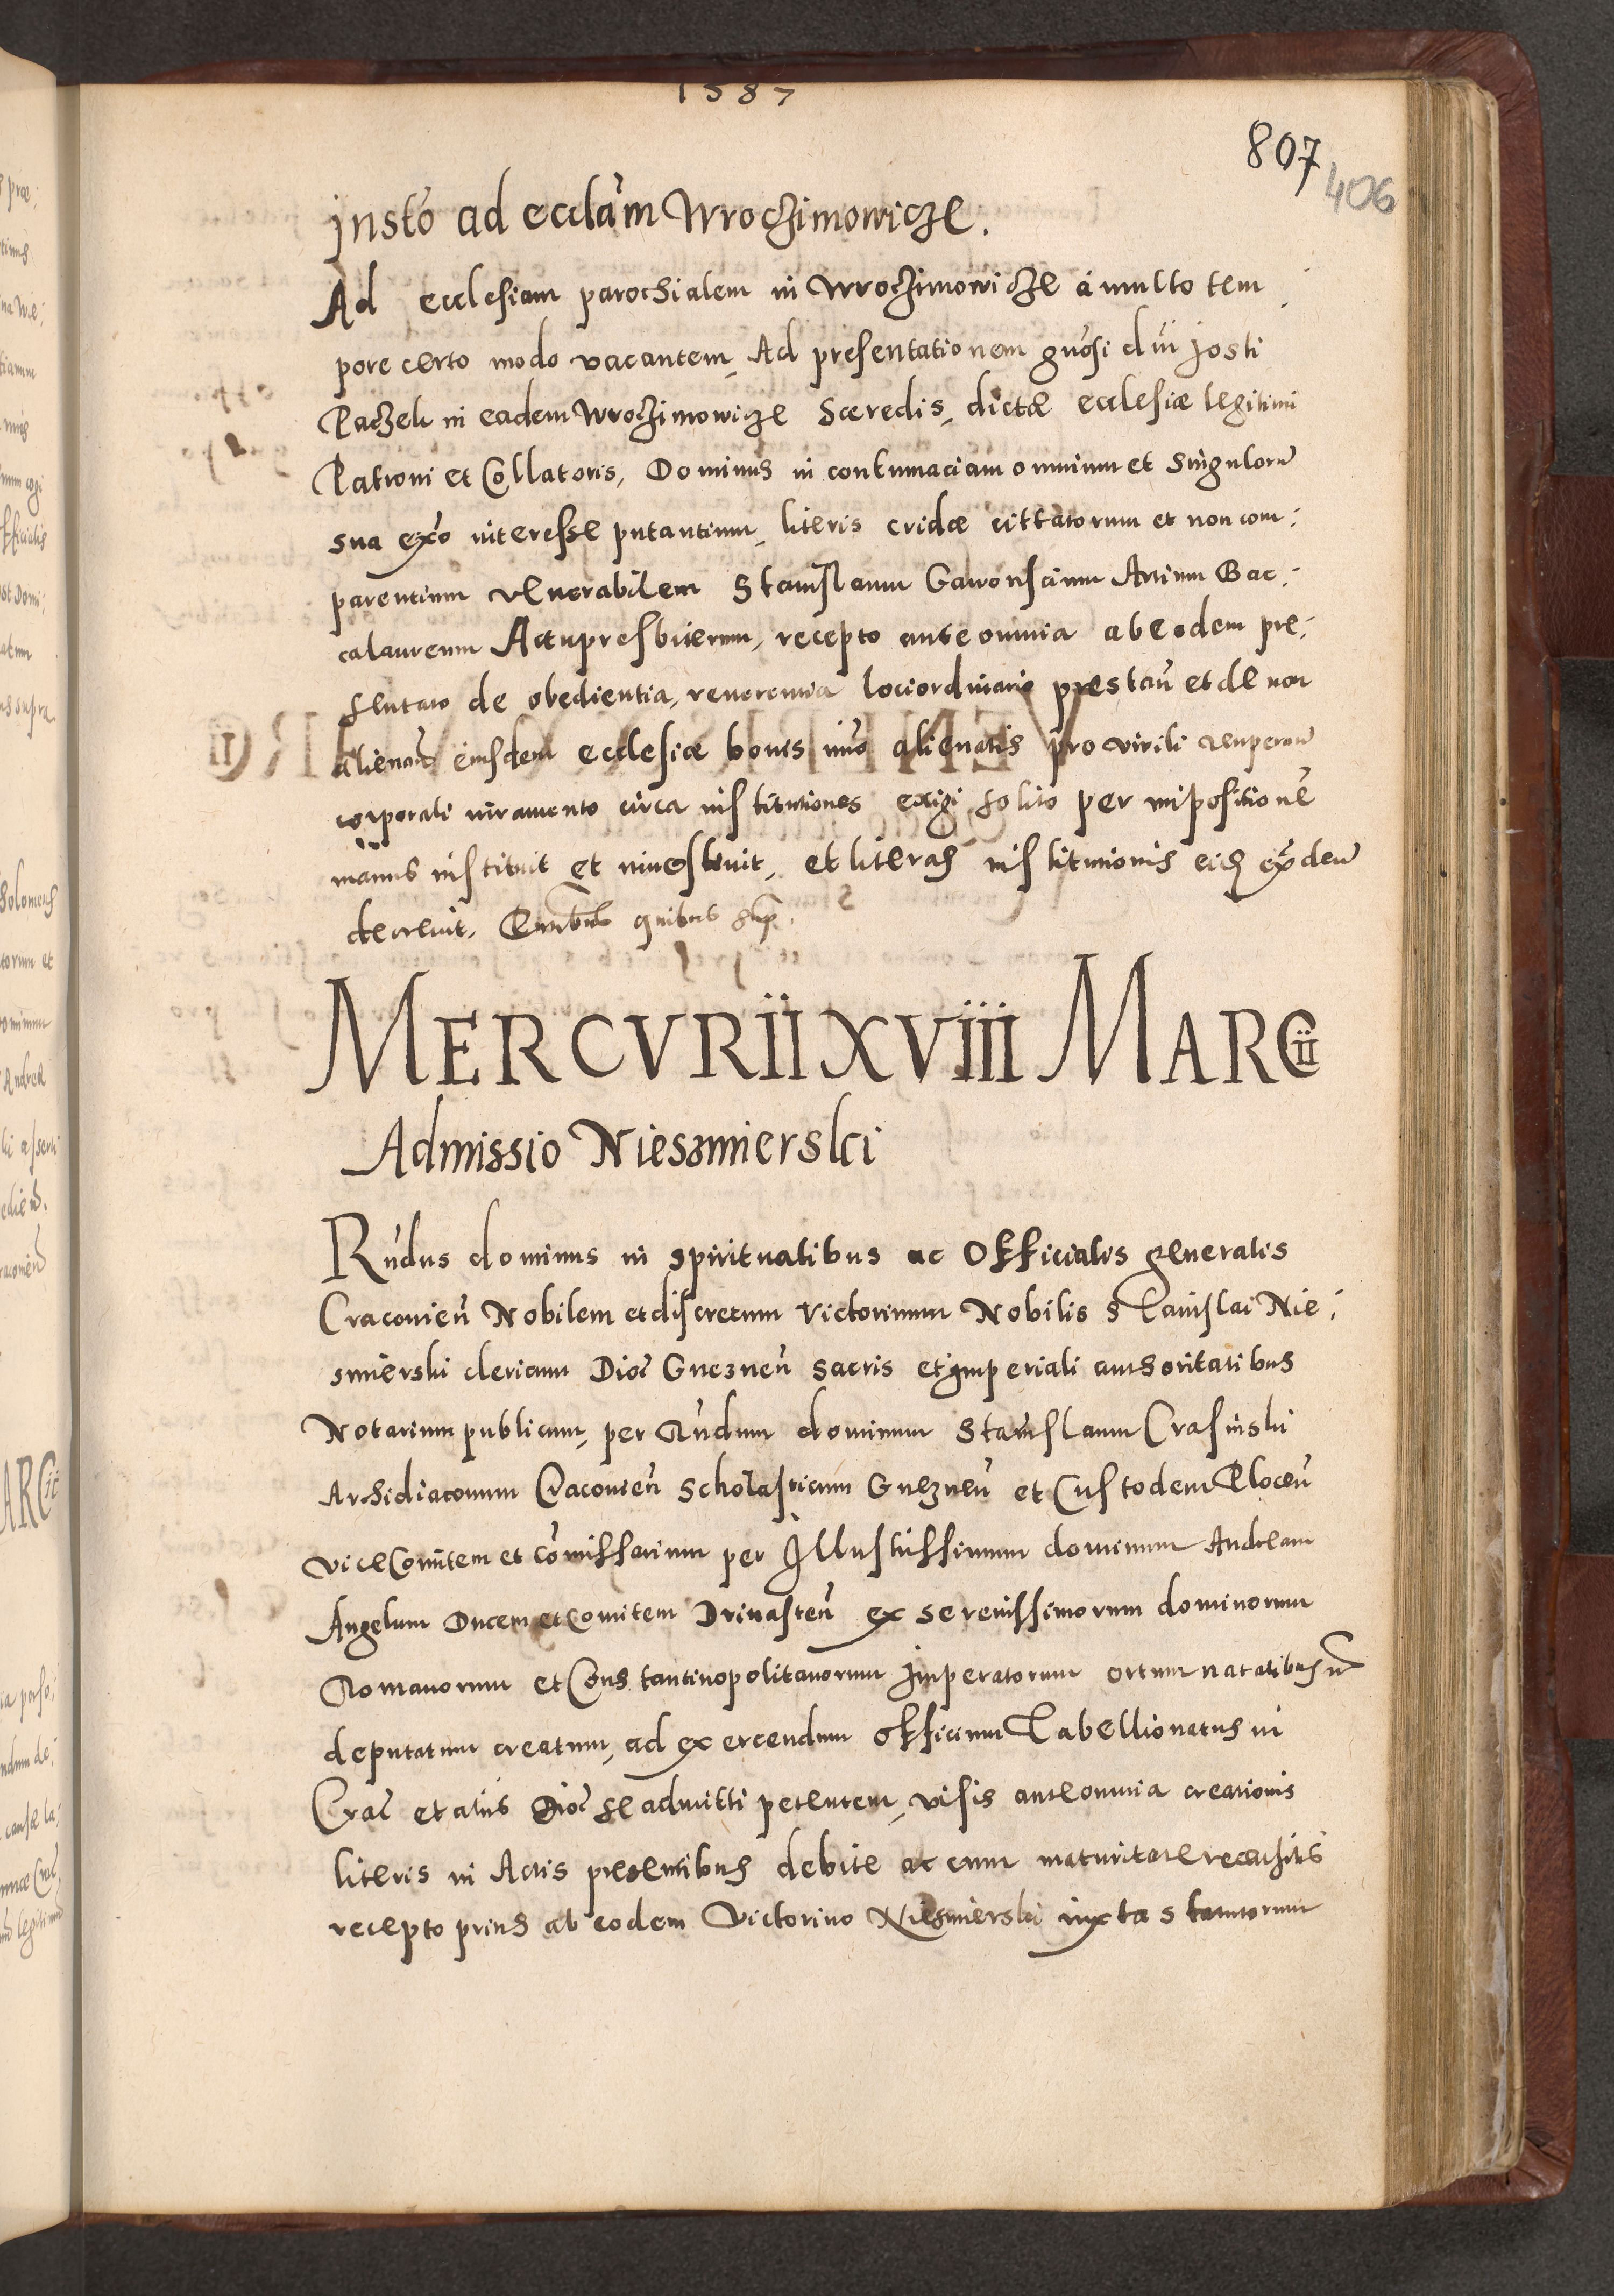 1587
807
406
Insto ad ecclam Wroczimowicze.
Ad ecclesiam parochialem in Wroczimowicze a multo tem
pore certo modo vacantem, Ad presentationem gnosi dni Josti
Paczek in eadem Wroczimowicze haeredis, dictæ ecclesiæ legitimi
Patroni et Collatoris, Dominus in contumaciam omnium et singulorū
sua exo interesse putantium, literis cridæ cittatorum et non com:
parentium venerabilem Stanislaum Gawonscium Artium Bac:
calaureum Actupresbiterum, recepto ante omnia ab eodem pre:
sentato de obedientia, reverentia loci ordinario prestan̄ et de non
alienan̄ eiusdem ecclesiæ bonis imo alienatis pro virili recuperan̄
corporali iuramento circa institutiones exigi solito per impositionē
manus instituit et investivit, et literas institutionis
decrevit. quibus sup.
MERCVRII XVIII MARCII
Admissio Niesmierski
Rndus dominus in spiritualibus ac Officialis generalis
Cracovien̄ Nobilem et discretum Victorinum Nobilis Stanislai Nie:
smierski clericum Dioc Gneznen̄ sacris et imperiali authoritatibus
Notarium publicum, per Rndum dominum Stanislaum Crasinski
Archidiaconum Cracovien̄ Scholasticum Gneznen̄ et Custodem Plocen̄
viceComitem et comissarium per Illustrissimum dominum Andream
Angelum Ducem et Comitem Drinasten̄ ex serenissimorum dominorum
Romanorum et Constantinopolitanorum Imperatorum ortum natalibus
deputatum creatum, ad exercendum officium Tabellionatus in
Crac et alius Dioc se admitti petentem, visis ante omnia creationis
literis in Actis presentibus debite ac cum maturitate recensitis
recepto prius ab eodem Victorino Niesmierski iuxta statutorum